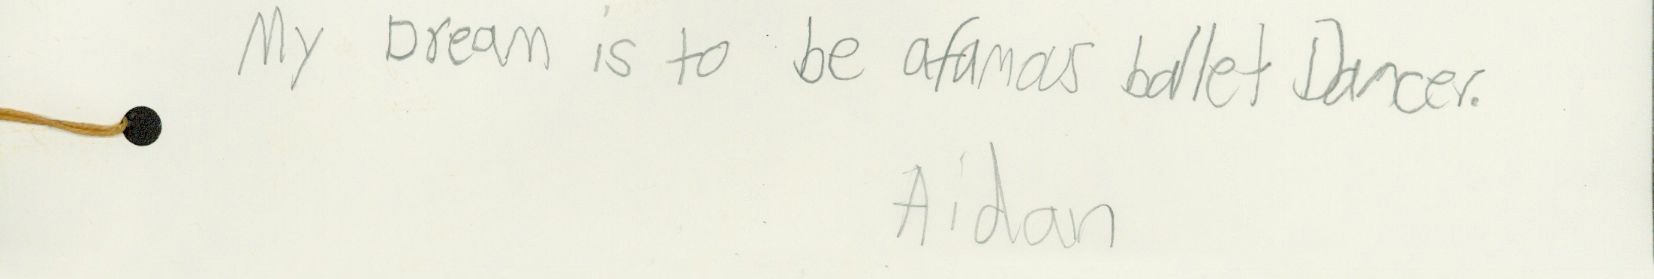 My Dream is to be afamous ballet Dancer.
Aidan